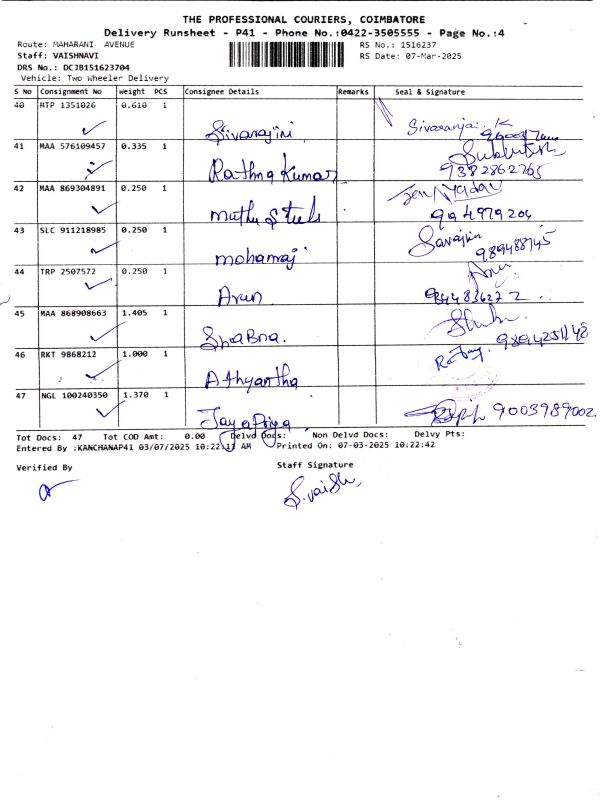 THE PROFESSIONAL COURIERS, COIMBATORE
Delivery Runsheet - P41 - Phone No.:0422-3505555 - Page No.:4
Route: MAHARANI AVENUE RS No.: 1516237
Staff: VAISHNAVI RS Date: 07-Mar-2025
DRS No.: DCJB151623704
Vehicle: Two Wheeler Delivery
S No Consignment No Weight PCS Consignee Details Remarks Seal & Signature
40 MTP 1351026 0.610 1 Sivarajini Sivaranja. K
41 MAA 576109457 0.335 1 Rathna Kumar 9382862765
42 MAA 869304891 0.250 1 Muthu Steels 994979204
43 SLC 911218985 0.250 1 mohanraj
44 TRP 2507572 0.250 1 Arun
45 MAA 868908663 1.405 1 ShaBna.
46 RKT 9868212 1.000 1 Athyantha
47 NGL 100240350 1.370 1 JayaPriya 9003989002
Tot Docs: 47 Tot COD Amt: 0.00 Delvd Docs: Non Delvd Docs: Delvy Pts:
Entered By :KANCHANAP41 03/07/2025 10:22:11 AM Printed On: 07-03-2025 10:22:42
Verified By Staff Signature
S.vaish